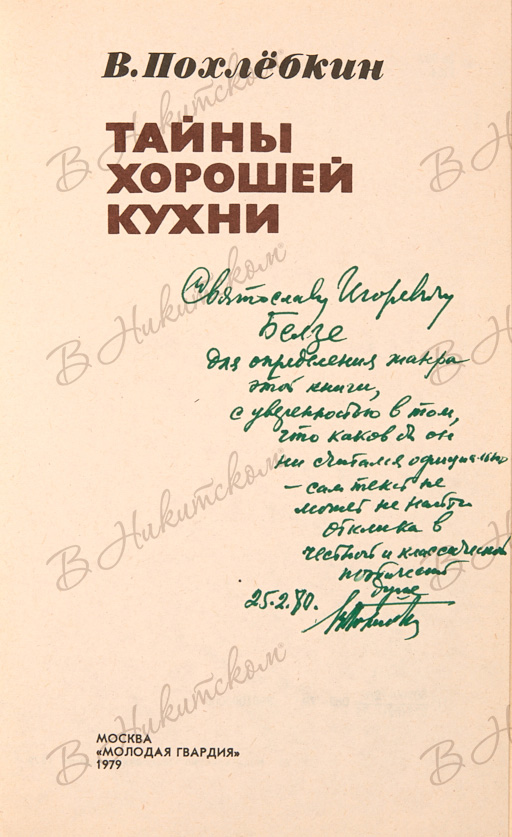 В. Похлёбкин
ТАЙНЫ
ХОРОШЕЙ
КУХНИ
Святославу Игоревичу
Бэлзе
для определения жанра
этой книги,
с уверенностью в том,
что каков бы он
ни считался официально
– сам текст не
может не найти
отклика в
честной и классической
поэтической
душе
25.2.80.
МОСКВА
«МОЛОДАЯ ГВАРДИЯ»
1979
В Никитском
В Никитском
В Никитском
В Никитском